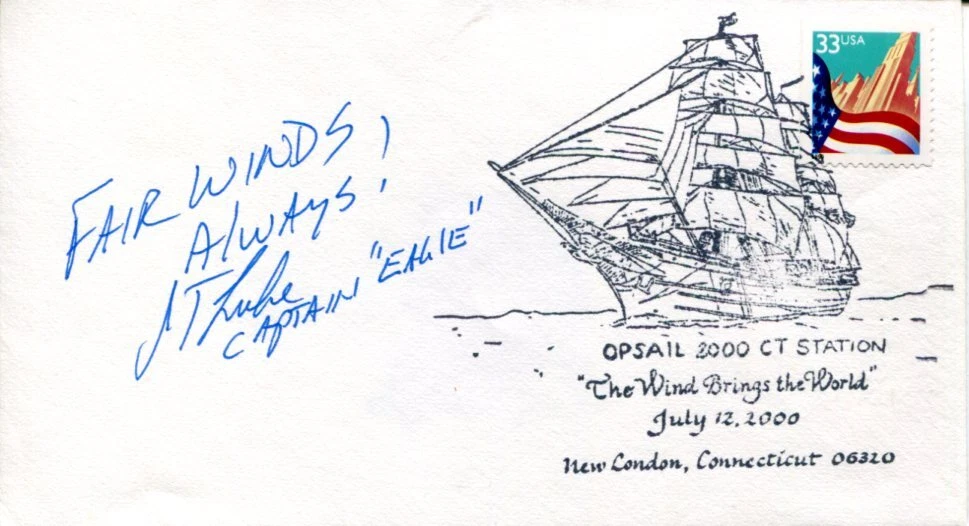 33 USA
FAIR WINDS,
Always!
JT Luke
CAPTAIN "EAGLE"
OPSAIL 2000 CT STATION
"The Wind Brings the World"
July 12, 2000
New London, Connecticut 06320